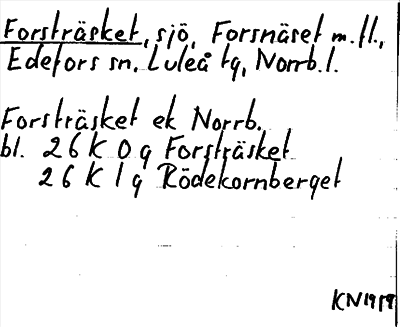 Forsträsket, sjö, Forsnäset m.fl.,
Edefors sn, Luleå tg, Norrb.l.
Forsträsket ek Norrb.
bl. 26 K 0 g Forsträsket
26 K 1 g Rödekornberget